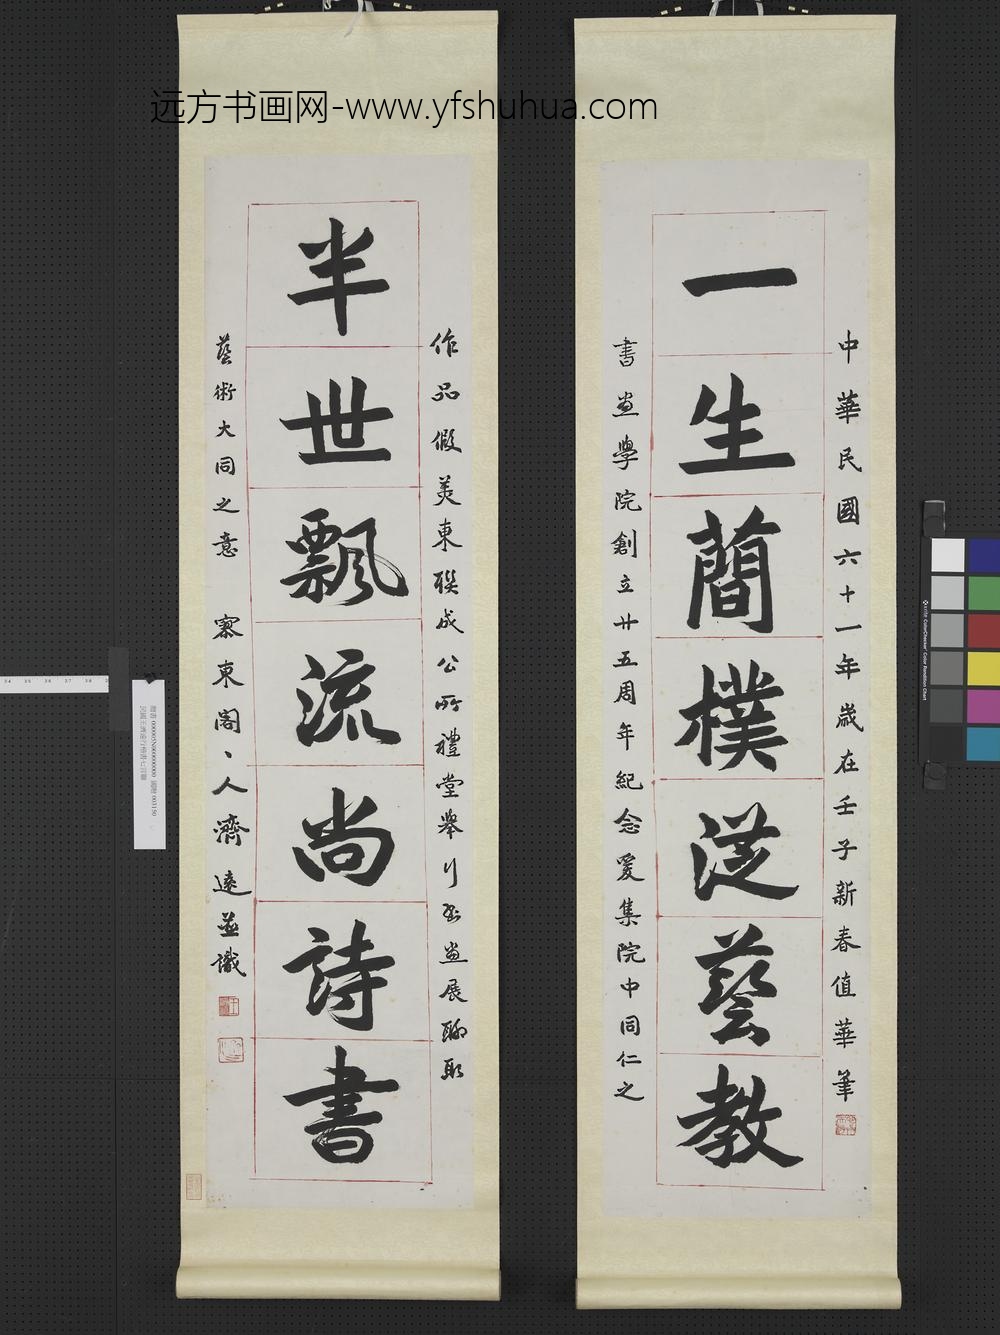 远方书画网-www.yfshuhua.com
中華民國六十一年歲在壬子新春值華筆
一生蕳樸從藝教
書畫學院創立廿五周年紀念爰集院中同仁之
作品假美東聯成公所禮堂舉行書畫展聊取
半世飄流尚詩書
藝術大同之意 寮東閣丶人濟遠並識
贈書 000005N000000000 國贈 003150
民國王濟遠行楷書七言聯